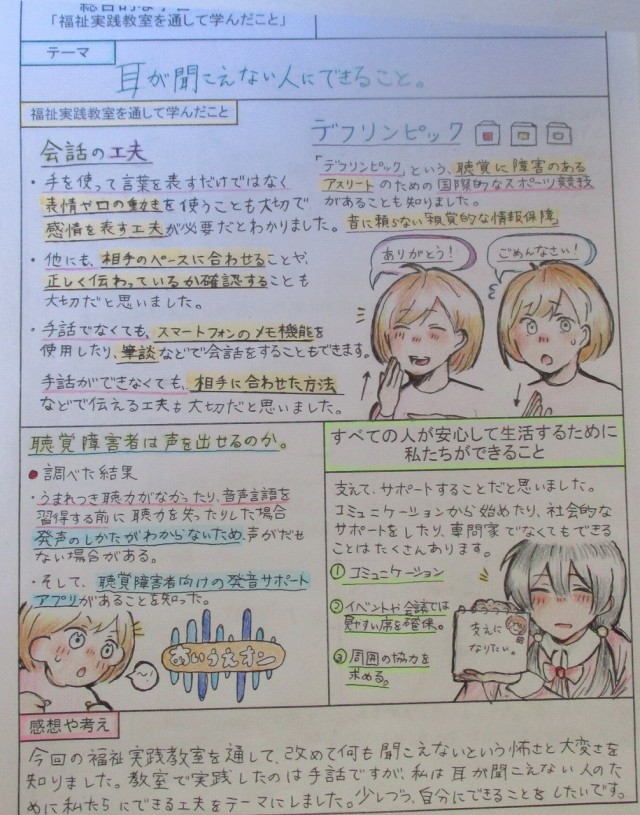 総合的な学習
「福祉実践教室を通して学んだこと」
テーマ
耳が聞こえない人にできること。
福祉実践教室を通して学んだこと
会話の工夫
・手を使って言葉を表すだけではなく
表情や口の動きを使うことも大切で
感情を表す工夫が必要だとわかりました。
・他にも、相手のペースに合わせることや、
正しく伝わっているか確認することも
大切だと思いました。
・手話でなくても、スマートフォンのメモ機能を
使用したり、筆談などで会話をすることもできます。
手話ができなくても、相手に合わせた方法
などで伝える工夫も大切だと思いました。
デフリンピック
「デフリンピック」という、聴覚に障害のある
アスリートのための国際的なスポーツ競技
があることも知りました。
音に頼らない「視覚的な情報保障」
ありがとう!
ごめんなさい!
聴覚障害者は声を出せるのか。
●調べた結果
・うまれつき聴力がなかったり、音声言語を
習得する前に聴力を失ったりした場合
発声のしかたがわからないため、声がだせ
ない場合がある。
・そして、聴覚障害者向けの発音サポート
アプリがあることを知った。
あいうえオン
すべての人が安心して生活するために
私たちができること
支えて、サポートすることだと思いました。
コミュニケーションから始めたり、社会的な
サポートをしたり、専門家でなくてもできる
ことはたくさんあります。
①コミュニケーション
②イベントや会議では
見やすい席を確保。
③周囲の協力を
求める。
支えに
なりたい。
感想や考え
今回の福祉実践教室を通して、改めて何も聞こえないという怖さと大変さを
知りました。教室で実践したのは手話ですが、私は耳が聞こえない人のた
めに私たちにできる工夫をテーマにしました。少しづつ、自分にできることをしたいです。